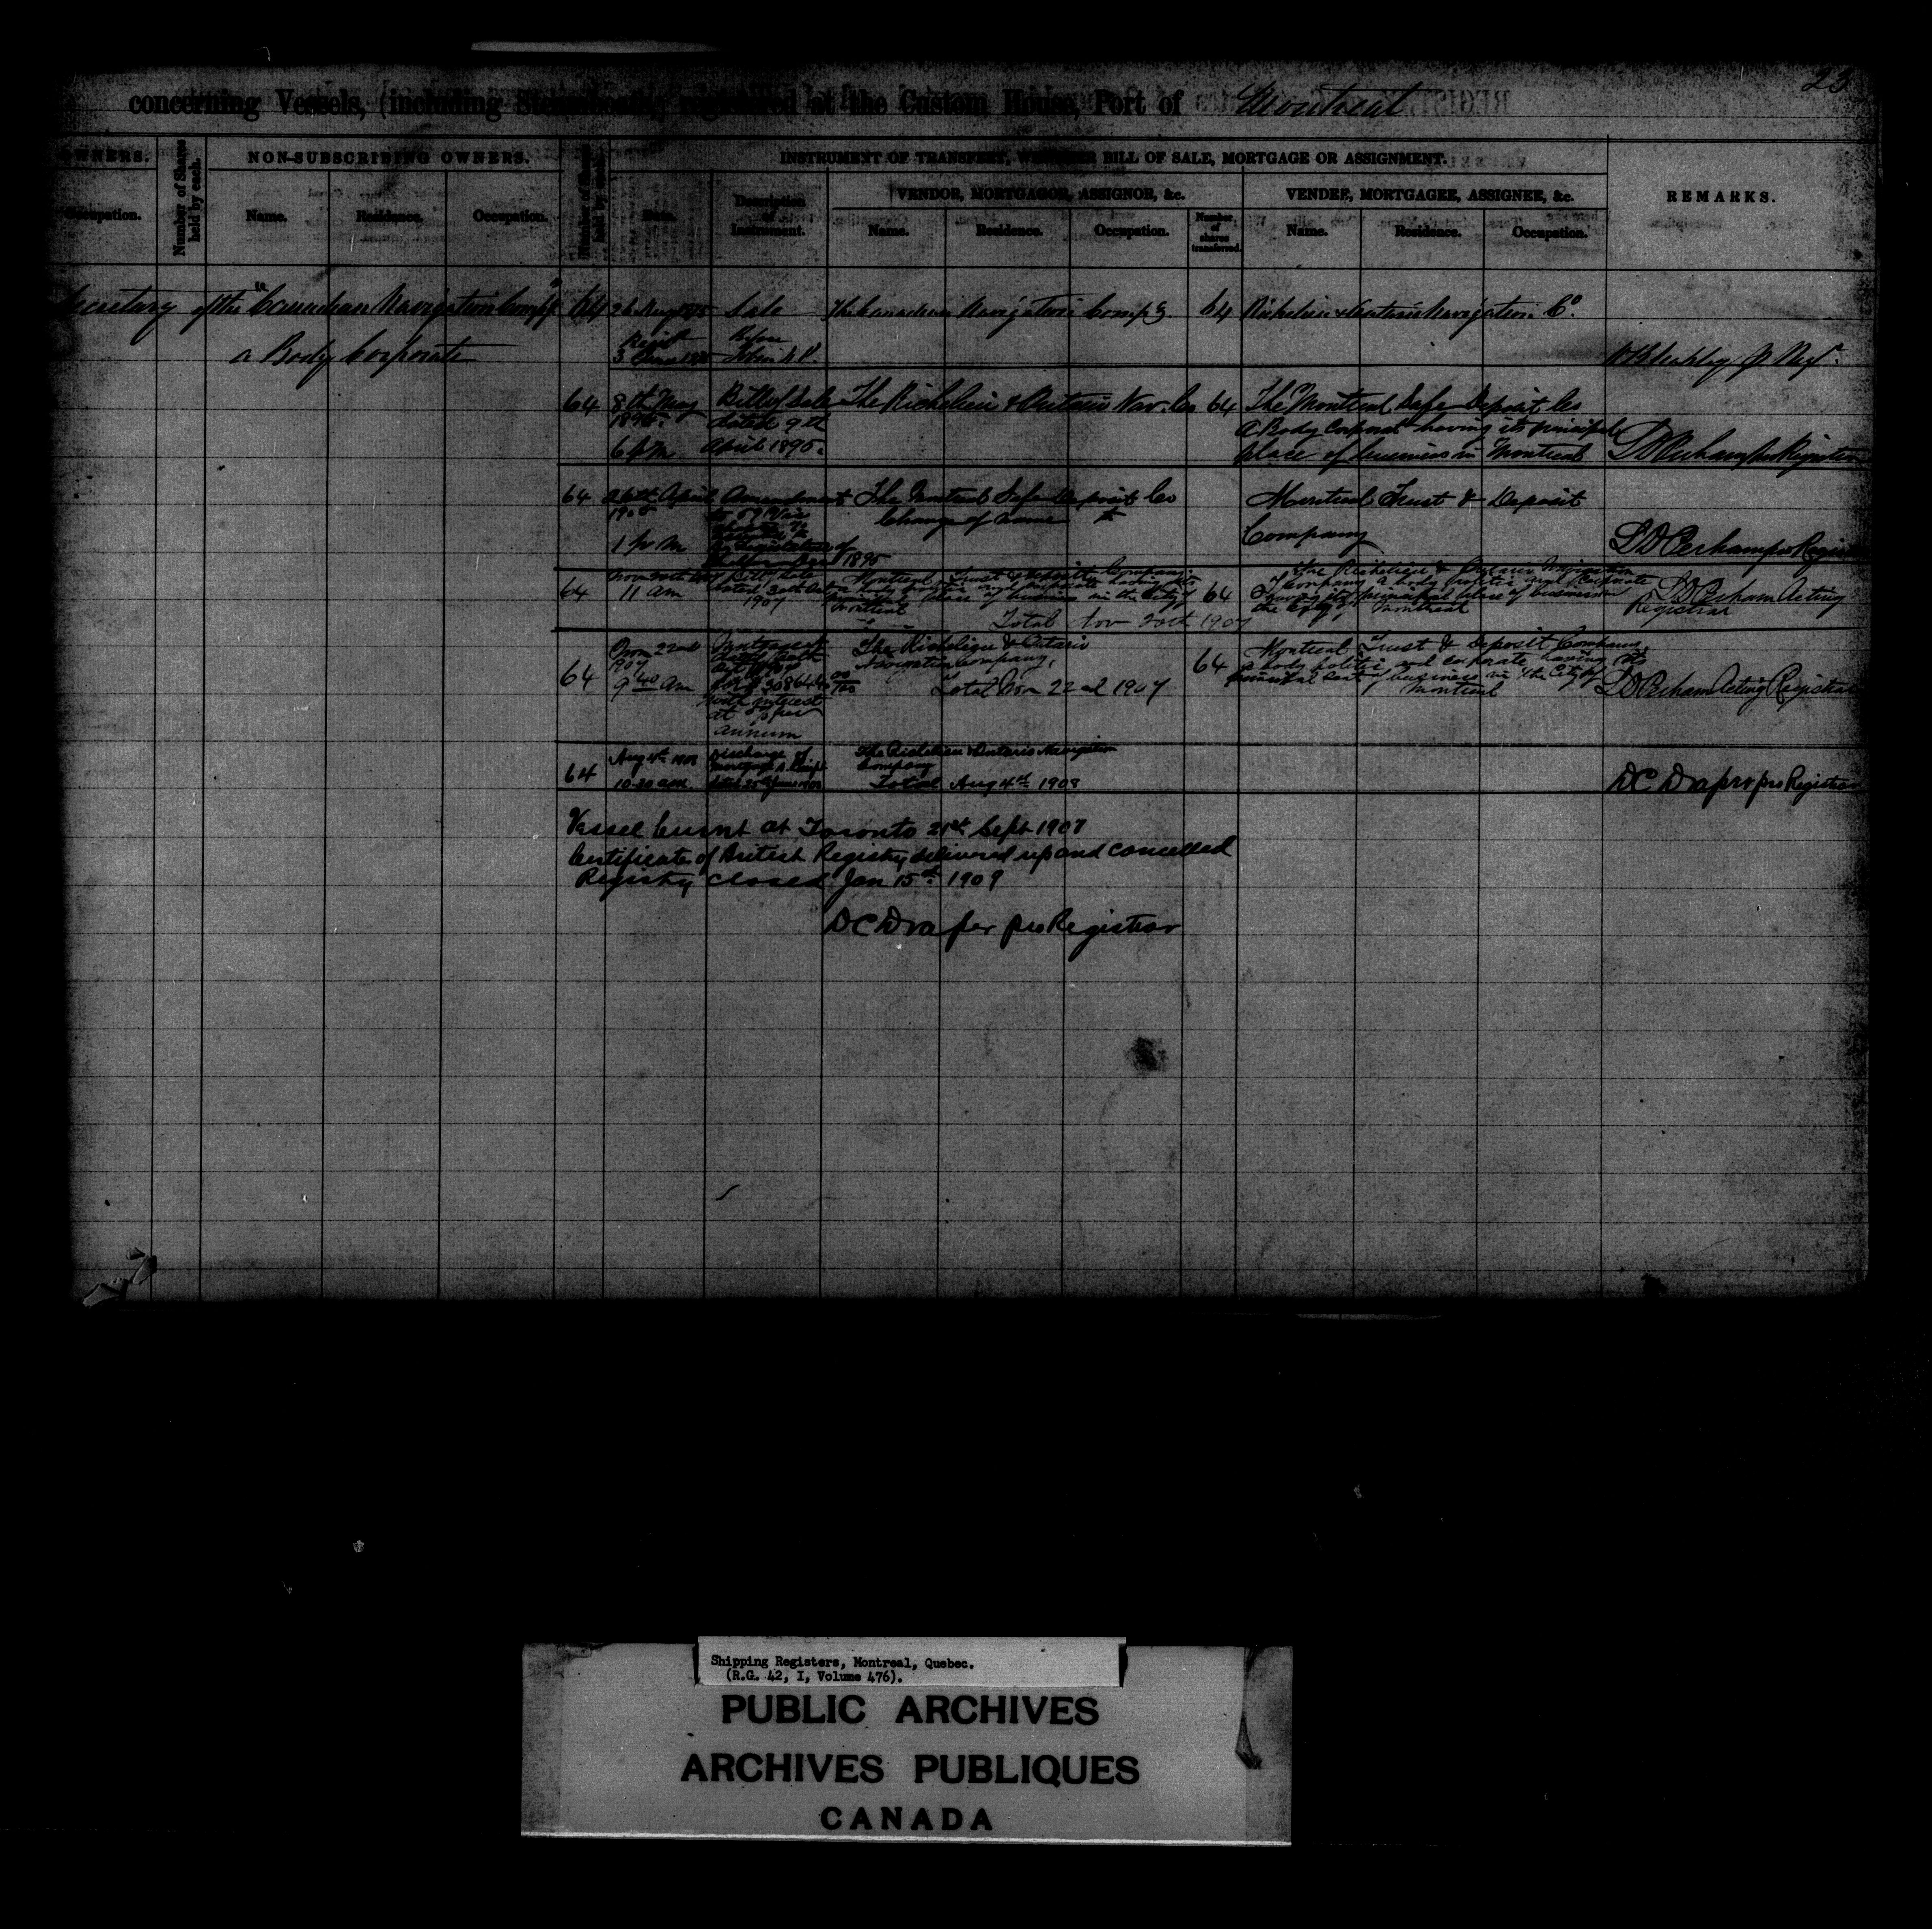 23
concerning Vessels, (including Steamboats,) registered at the Custom House, Port of Montreal
OWNERS.
Occupation.
Number of Shares held by each.
NON-SUBSCRIBING OWNERS.
Name.
Residence.
Occupation.
Number of Shares held by each.
INSTRUMENT OF TRANSFER, WHETHER BILL OF SALE, MORTGAGE OR ASSIGNMENT.
Date.
Description of Instrument.
VENDOR, MORTGAGOR, ASSIGNOR, &c.
Name.
Residence.
Occupation.
Number of shares transferred.
VENDEE, MORTGAGEE, ASSIGNEE, &c.
Name.
Residence.
Occupation.
REMARKS.
Secretary of the "Canadian Navigation Compy"
a Body Corporate
64
Sale
The Canadian Navigation Compy
64
Richelieu & Ontario Navigation Co.
64
8th May
1895.
6 PM
Bill of Sale
dated 9th
April 1895.
The Richelieu & Ontario Nav. Co
64
The Montreal Safe Deposit Co
a Body Corporate having its principal
place of business in Montreal
L D Perham pro Registrar
64
26th April
1 p m
Amendment
1895
The Montreal Safe Deposit Co
Change of name
Montreal Trust & Deposit
Company
L D Perham pro Registrar
64
11 am
Bill of Sale
1907
Montreal Trust & Deposit Company
place of business in the City of
Montreal
Total Nov 20th 1907
64
The Richelieu & Ontario Navigation
Company a body politic and corporate
having its principal place of business in
the City of Montreal
L D Perham Acting
Registrar
64
Nov 22nd
1907
9 40 am
with interest
at per
annum
The Richelieu & Ontario
Navigation Company,
Total Nov 22nd 1907
64
Montreal Trust & Deposit Company
a body politic and corporate having its
principal seat of business in the City of
Montreal
L D Perham Acting Registrar
64
Aug 4th 1908
10.30 am.
Discharge of
Mortgage
The Richelieu & Ontario Navigation
Company
Total Aug 4th 1908
D C Draper pro Registrar
Vessel burnt at Toronto 21st Sept 1907
Certificate of British Registry delivered up and cancelled
Registry closed Jan 15th 1909
D C Draper pro Registrar
Shipping Registers, Montreal, Quebec.
(R.G. 42, I, Volume 476).
PUBLIC ARCHIVES
ARCHIVES PUBLIQUES
CANADA